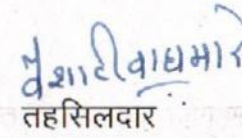 वैशाली वाघमारे
तहसिलदार